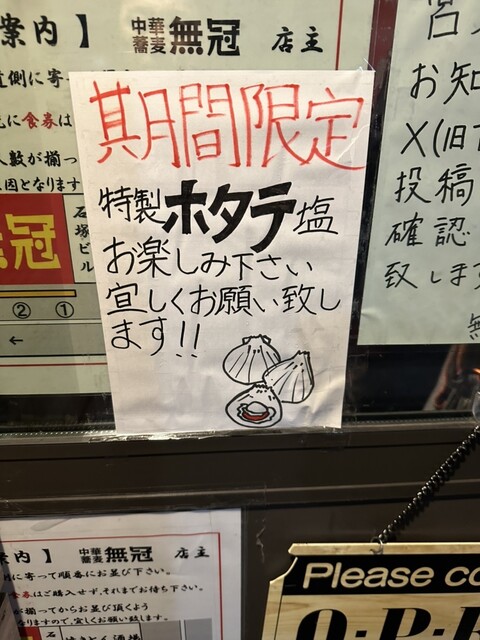 案内】 中華蕎麦 無冠 店主
食券は
人数が揃っ
原因となります
無冠
石塚ビル
② ①
←
期間限定
特製ホタテ塩
お楽しみ下さい
宜しくお願い致し
ます!!
お知
X(旧T
投稿
確認
致します
案内】 中華蕎麦 無冠 店主
に寄って順番にお並び下さい。
はご購入せず、それまでお待ち下さい。
が揃ってからお並び頂くよう
なりますので、宜しくお願い致します。
Please co
O·P·E